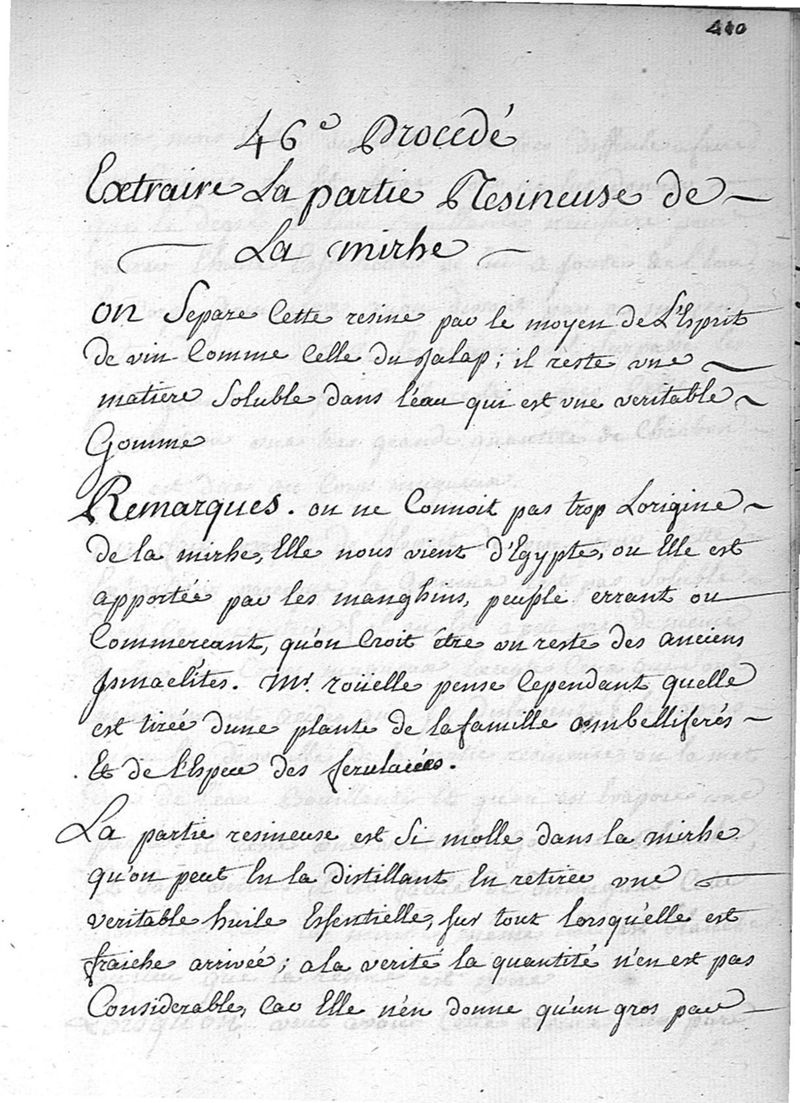 410
46e Procedé
Extraire La partie Resineuse de
La mirhe
on Separe Cette resine par le moyen de L'Esprit
de vin Comme Celle du Jalap; il reste une
matiere Soluble dans l'eau qui est une veritable
Gomme
Remarques. on ne Connoit pas trop Lorigine
de la mirhe, Elle nous vient d'Egypte, ou Elle est
apportée par les manghins, peuple errant ou
Commercant, qu'on Croit être un reste des anciens
Ismaelites. Mr. roüelle pense Cependant quelle
est tirée dune plante de la famille ombelliferés
Et de l'Espece des ferulacées.
La partie resineuse est Si molle dans la mirhe
qu'on peut En la distillant En retirer une
veritable huile Essentielle, sur tout lorsqu'elle est
fraiche arrivée; a la verité la quantité n'en est pas
Considerable, Car Elle n'en donne qu'un gros par